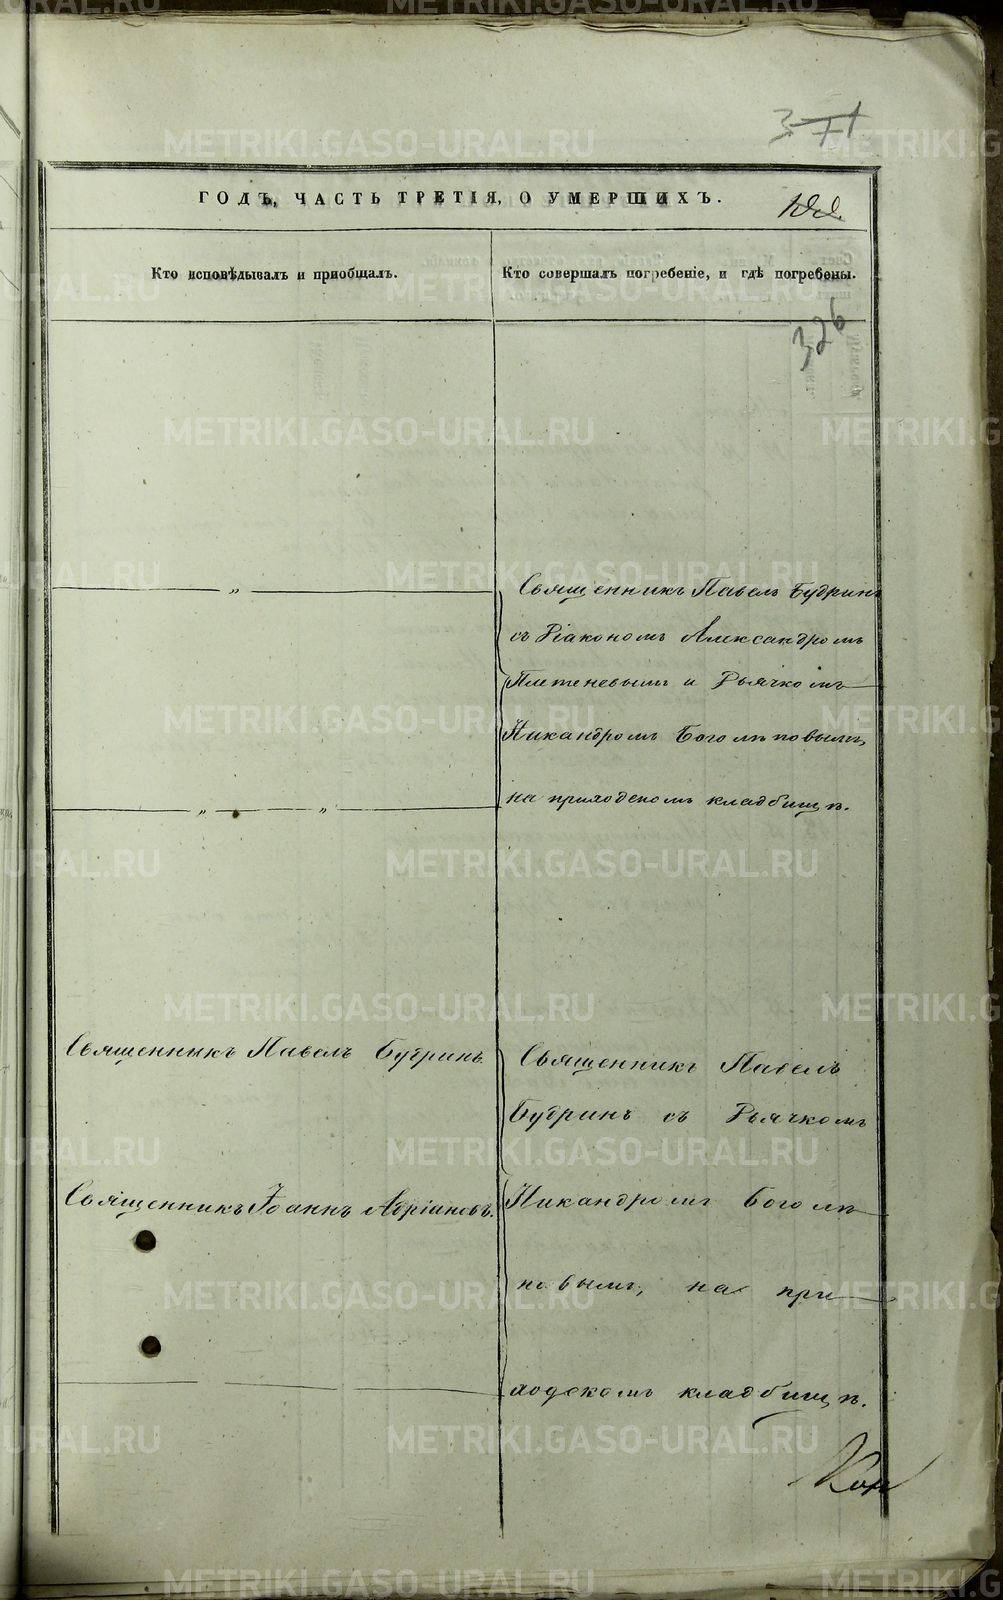 371
ГОДЪ, ЧАСТЬ ТРЕТІЯ, О УМЕРШИХЪ.
Кто исповѣдывалъ и приобщалъ.
Кто совершалъ погребеніе, и гдѣ погребены.
326
Священникъ Павелъ Будринъ
съ Діакономъ Александромъ
Плетеневымъ и Дьячкомъ
Никандромъ Боголѣповымъ,
на приходскомъ кладбищѣ.
Священникъ Павелъ Будринъ.
Священникъ Іоаннъ Адріановъ.
Священникъ Павелъ
Будринъ съ Дьячкомъ
Никандромъ Боголѣ
повымъ, на при
ходскомъ кладбищѣ.
METRIKI.GASO-URAL.RU